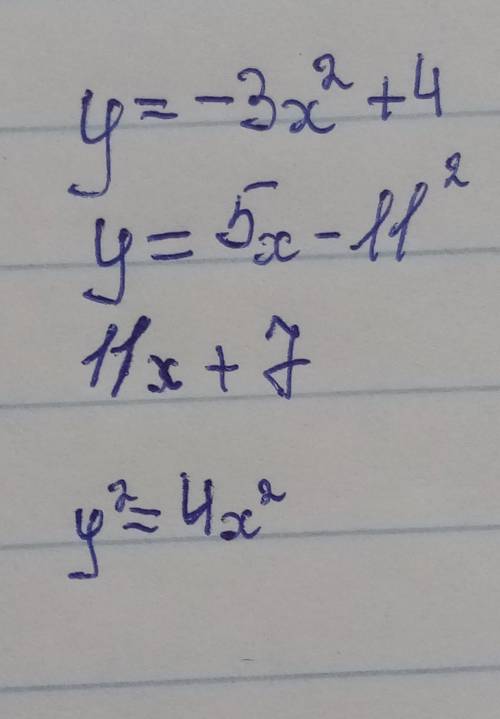 y = -3x² + 4
y = 5x - 11²
11x + 7
y² = 4x²